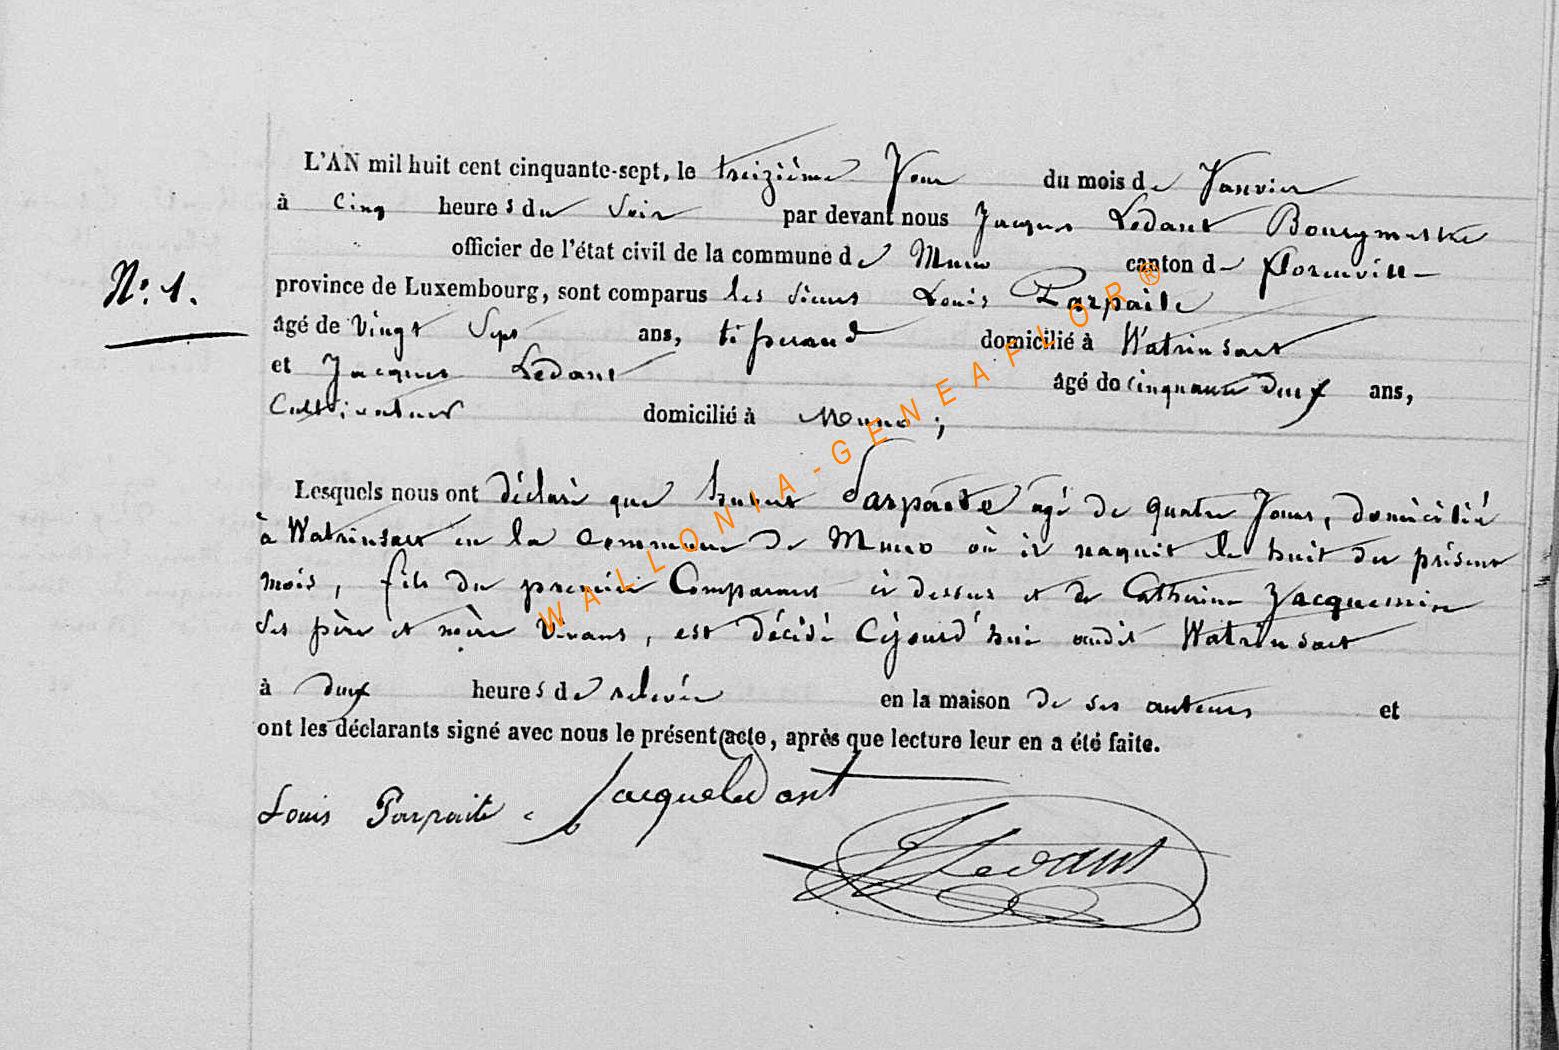 L'AN mil huit cent cinquante-sept, le treizième Jour du mois de Janvier
à Cinq heures du Soir par devant nous Jacques Ledant Bourgmestre
officier de l'état civil de la commune de Muno canton de Florenville
N.º 1.
province de Luxembourg, sont comparus les sieurs Louis Parpaite
âgé de Vingt Sept ans, tisserand domicilié à Watrinsart
et Jacques Ledant âgé de cinquante deux ans,
Cultivateur domicilié à Muno ;
Lesquels nous ont déclaré que hubert Parpaite agé de quatre Jours, domicilié
à Watrinsart en la Commune de Muno où il naquit le huit du présent
mois, fils du premier Comparant ci dessus et de Catherine Jacquemin
Ses père et mère Vivans, est décédé Cejourd'hui audit Watrinsart
à deux heures de relevée en la maison de ses auteurs et
ont les déclarants signé avec nous le présent acte, après que lecture leur en a été faite.
Louis Parpaite Jacque Ledant
JLedant
WALLONIA-GENEAFLOR®